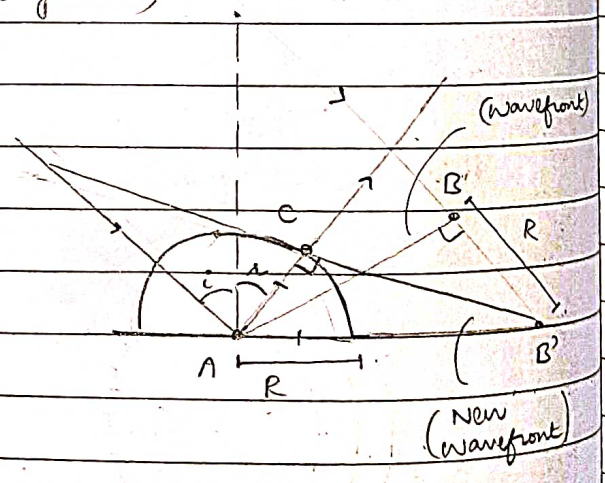 (Wavefront)
B
R
C
i
r
A
B'
R
(New
wavefront)